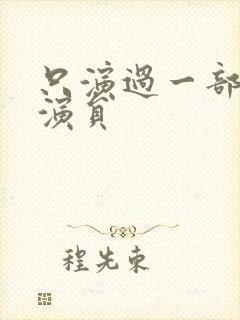 只演過一部
演員
程先東